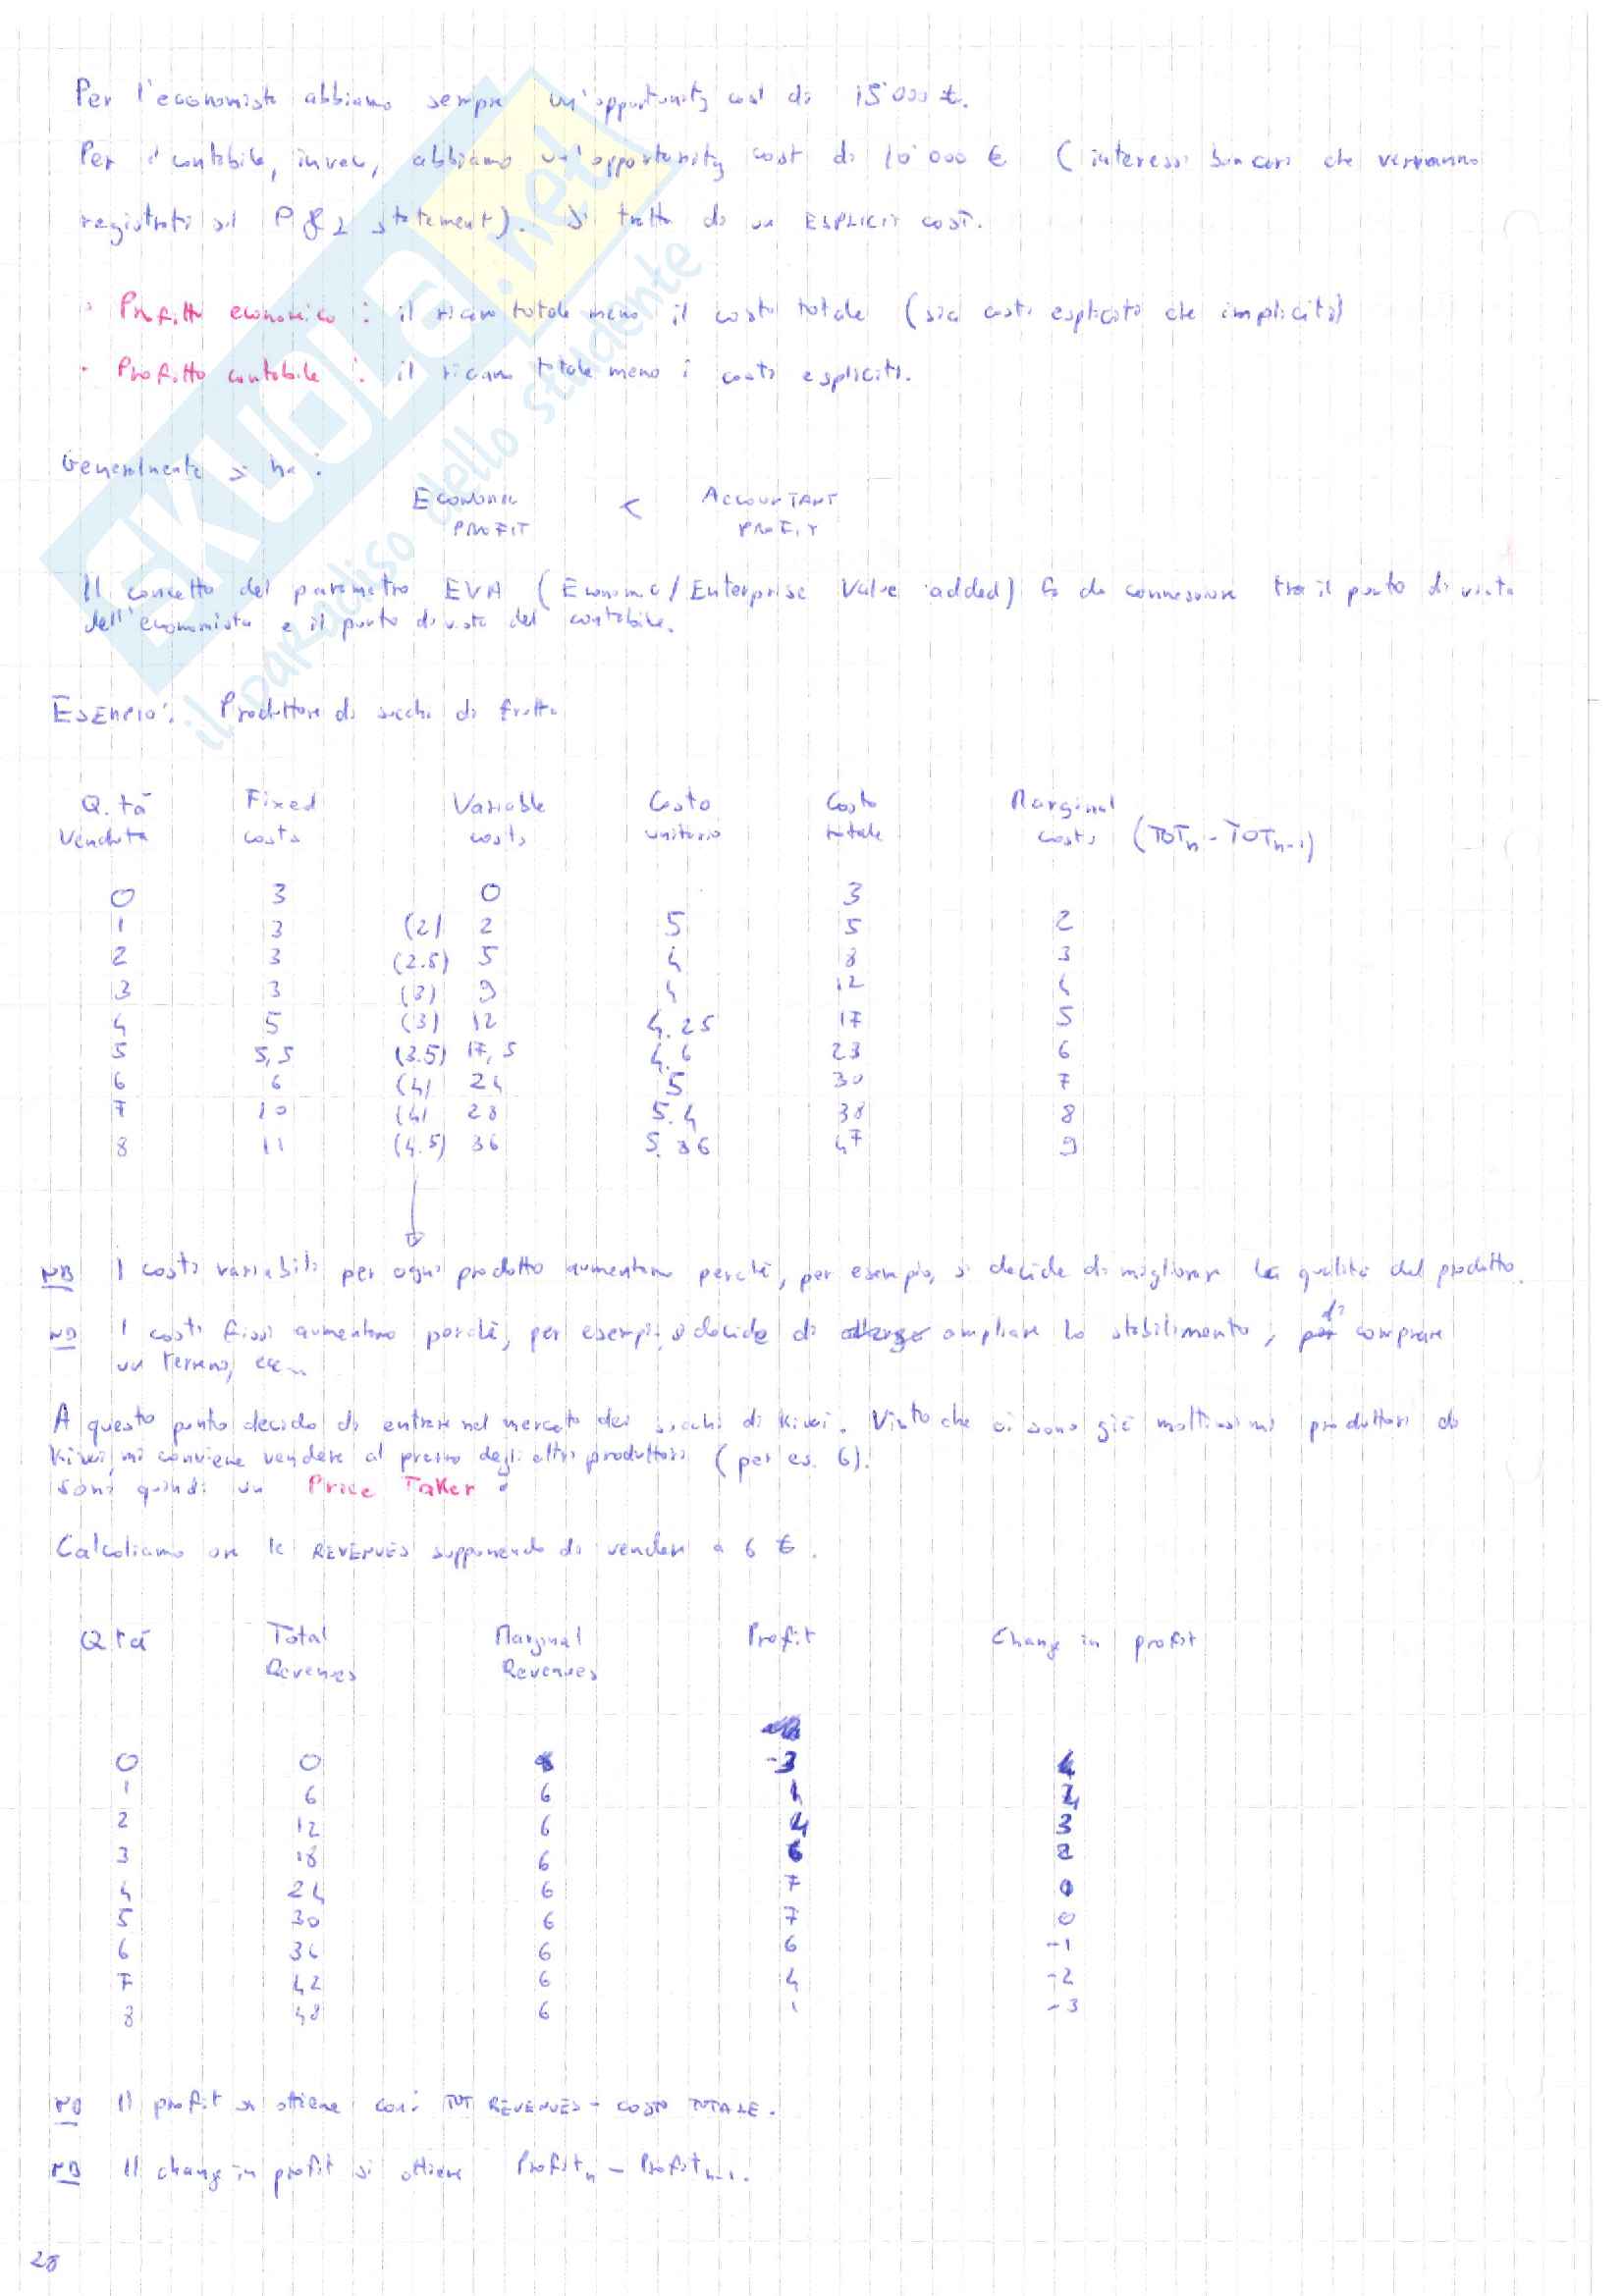 Per l'economista abbiamo sempre un'opportunity cost di 15'000 €.
Per il contabile, invece, abbiamo un'opportunity cost di 10'000 € (interessi bancari che verranno
registrati sul P & L statement). Si tratta di un ESPLICIT COST.
• Profitto economico : il ricavo totale meno il costo totale (sia costi espliciti che impliciti)
• Profitto contabile : il ricavo totale meno i costi espliciti.
Generalmente si ha :
ECONOMIC PROFIT < ACCOUNTANT PROFIT
Il concetto del parametro EVA (Economic/Enterprise Value added) fa da connessione tra il punto di vista
dell'economista e il punto di vista del contabile.
ESEMPIO: Produttore di succhi di frutta
Q.tà Fixed Variable Costo Costo Marginal
Venduta costs costs unitario totale costs (TOTn - TOTn-1)
0 3 0 3
1 3 (2) 2 5 5 2
2 3 (2.5) 5 4 8 3
3 3 (3) 9 4 12 4
4 5 (3) 12 4.25 17 5
5 5,5 (3.5) 17,5 4.6 23 6
6 6 (4) 24 5 30 7
7 10 (4) 28 5.4 38 8
8 11 (4.5) 36 5.86 47 9
NB I costi variabili per ogni prodotto aumentano perché, per esempio, si decide di migliorare la qualità del prodotto.
NB I costi fissi aumentano perché, per esempio, si decide di ampliare lo stabilimento, di comprare
un terreno, ecc...
A questo punto decido di entrare nel mercato dei succhi di kiwi. Visto che ci sono già moltissimi produttori di
kiwi, mi conviene vendere al prezzo degli altri produttori (per es. 6).
Sono quindi un Price Taker.
Calcoliamo ora le REVENUES supponendo di vendere a 6 €.
Q.tà Total Marginal Profit Change in profit
Revenues Revenues
0 0 -3
1 6 6 1 4
2 12 6 4 3
3 18 6 6 2
4 24 6 7
5 30 6 7 0
6 36 6 6 -1
7 42 6 4 -2
8 48 6 1 -3
NB Il profit si ottiene così TOT REVENUES - COSTO TOTALE.
NB Il change in profit si ottiene Profitn - Profitn-1.
28
SKUOLA.net
il paradiso dello studente